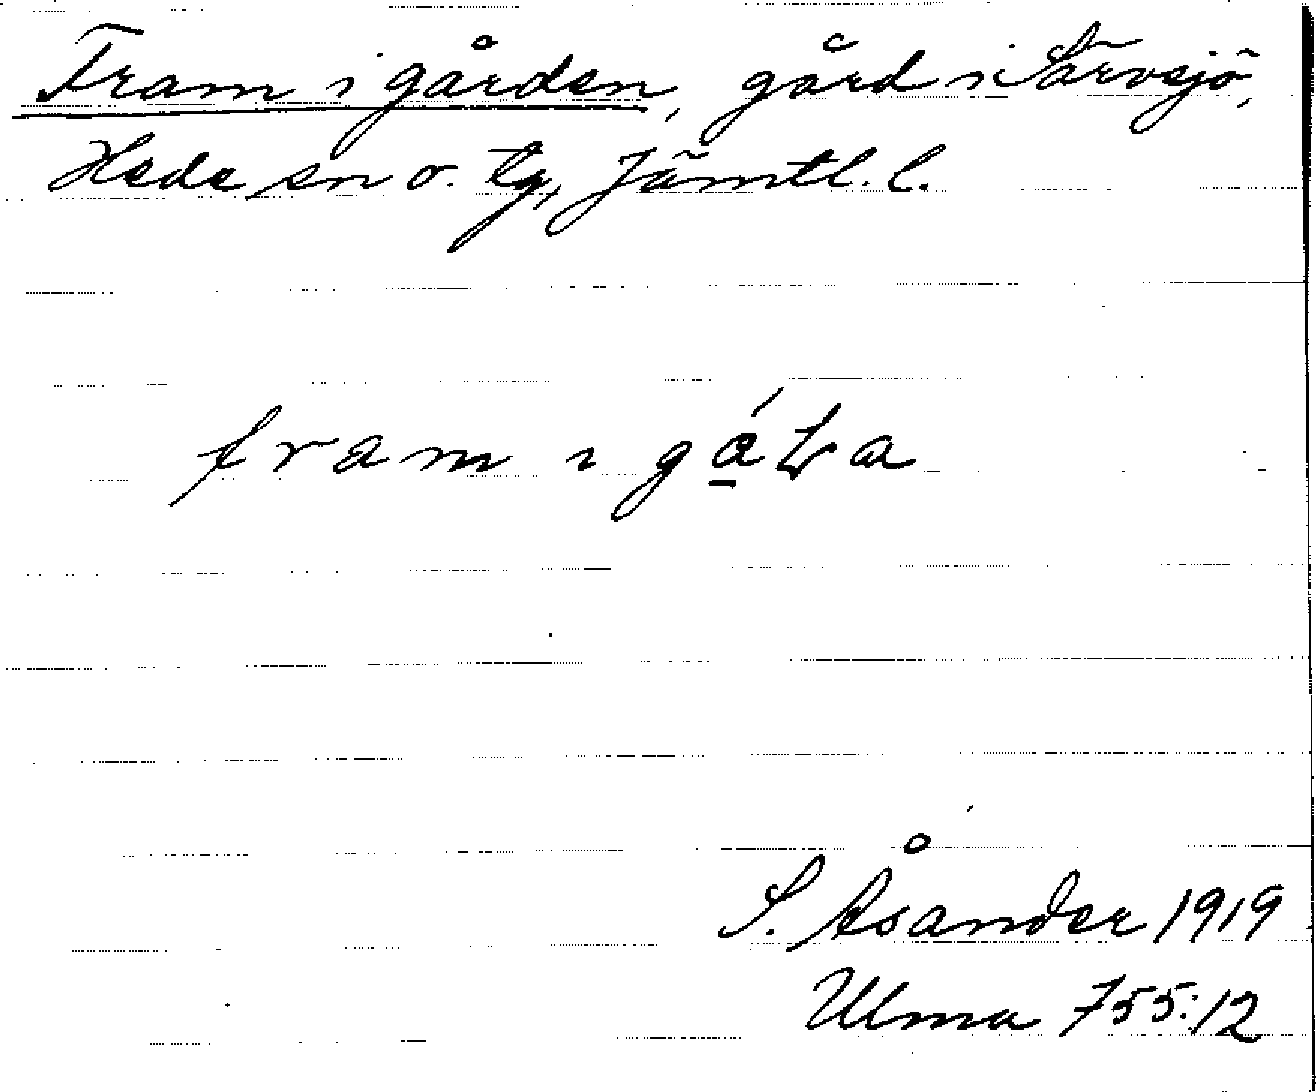 Fram i gården, gård i Särvsjö,
Hede sn o. tg, Jämtl. l.
fram i
S. Åsander 1919
Ulma 755:12